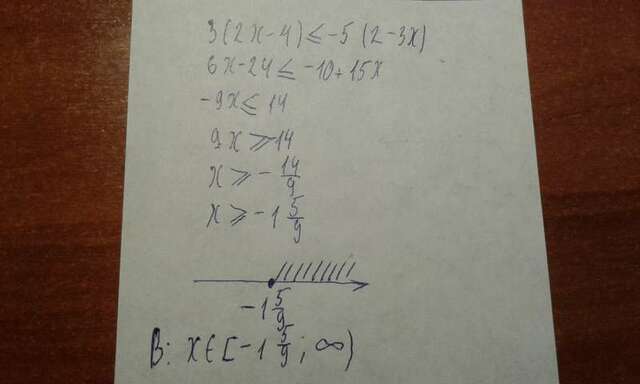 3(2x-4)≤-5(2-3x)
6x-24≤-10+15x
-9x≤14
9x≥14
x≥-14/9
x≥-1 5/9
-1 5/9
В: x∈[-1 5/9; ∞)